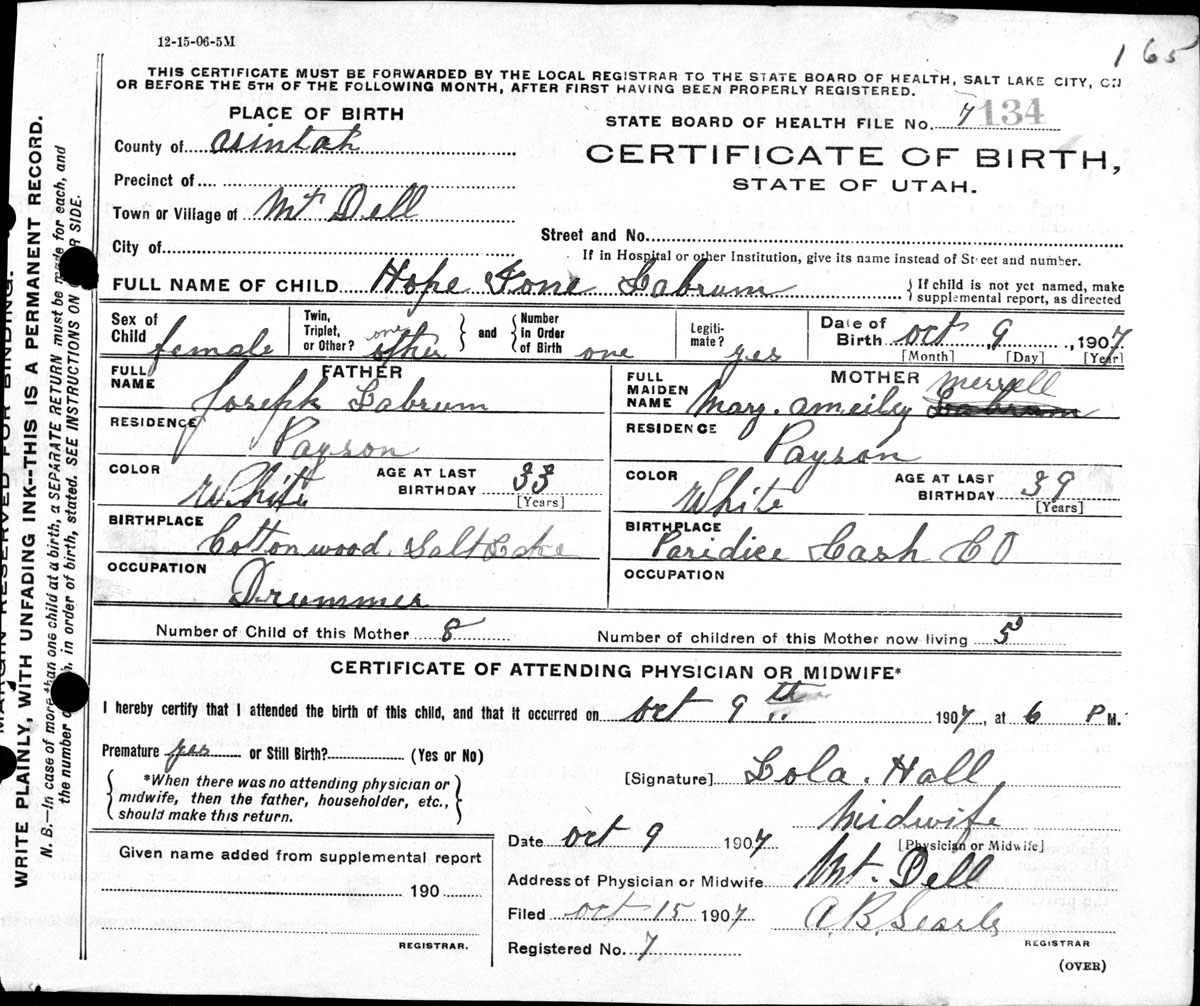 12-15-06-5M
1 65
THIS CERTIFICATE MUST BE FORWARDED BY THE LOCAL REGISTRAR TO THE STATE BOARD OF HEALTH, SALT LAKE CITY, ON
OR BEFORE THE 5TH OF THE FOLLOWING MONTH, AFTER FIRST HAVING BEEN PROPERLY REGISTERED.
PLACE OF BIRTH
STATE BOARD OF HEALTH FILE No. 7 134
County of asintah
CERTIFICATE OF BIRTH,
STATE OF UTAH.
Precinct of
Town or Village of Mt Dell
City of
Street and No.
If in Hospital or other Institution, give its name instead of Street and number.
FULL NAME OF CHILD Hope Fone Labrum
If child is not yet named, make
supplemental report, as directed
Sex of Child female
Twin, Triplet, or Other? one other
and Number in Order of Birth one
Legitimate? yes
Date of Birth oct 9, 1907
[Month] [Day] [Year]
FATHER
FULL NAME Joseph Labrum
RESIDENCE Payson
COLOR White
AGE AT LAST BIRTHDAY 33
[Years]
BIRTHPLACE Cottonwood Salt Lake
OCCUPATION Drummer
MOTHER
FULL MAIDEN NAME Mary. Ameiley Labrum Merrell
RESIDENCE Payson
COLOR White
AGE AT LAST BIRTHDAY 39
[Years]
BIRTHPLACE Paridice Cash CO
OCCUPATION
Number of Child of this Mother 8
Number of children of this Mother now living 5
CERTIFICATE OF ATTENDING PHYSICIAN OR MIDWIFE*
I hereby certify that I attended the birth of this child, and that it occurred on oct 9th 1907, at 6 P M.
Premature yes or Still Birth? (Yes or No)
*When there was no attending physician or
midwife, then the father, householder, etc.,
should make this return.
[Signature] Lola. Hall
Midwife
[Physician or Midwife]
Date oct 9 1907
Given name added from supplemental report
190
REGISTRAR.
Address of Physician or Midwife Mt. Dell
Filed oct 15 1907 A. B. Searle
REGISTRAR
Registered No. 7
(OVER)
MARGIN RESERVED FOR BINDING.
WRITE PLAINLY, WITH UNFADING INK—THIS IS A PERMANENT RECORD.
N. B.—In case of more than one child at a birth, a SEPARATE RETURN must be made for each, and
the number of in order of birth, stated. SEE INSTRUCTIONS ON SIDE.